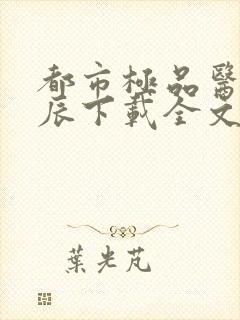 都市極品醫
辰下載全文
葉光芃